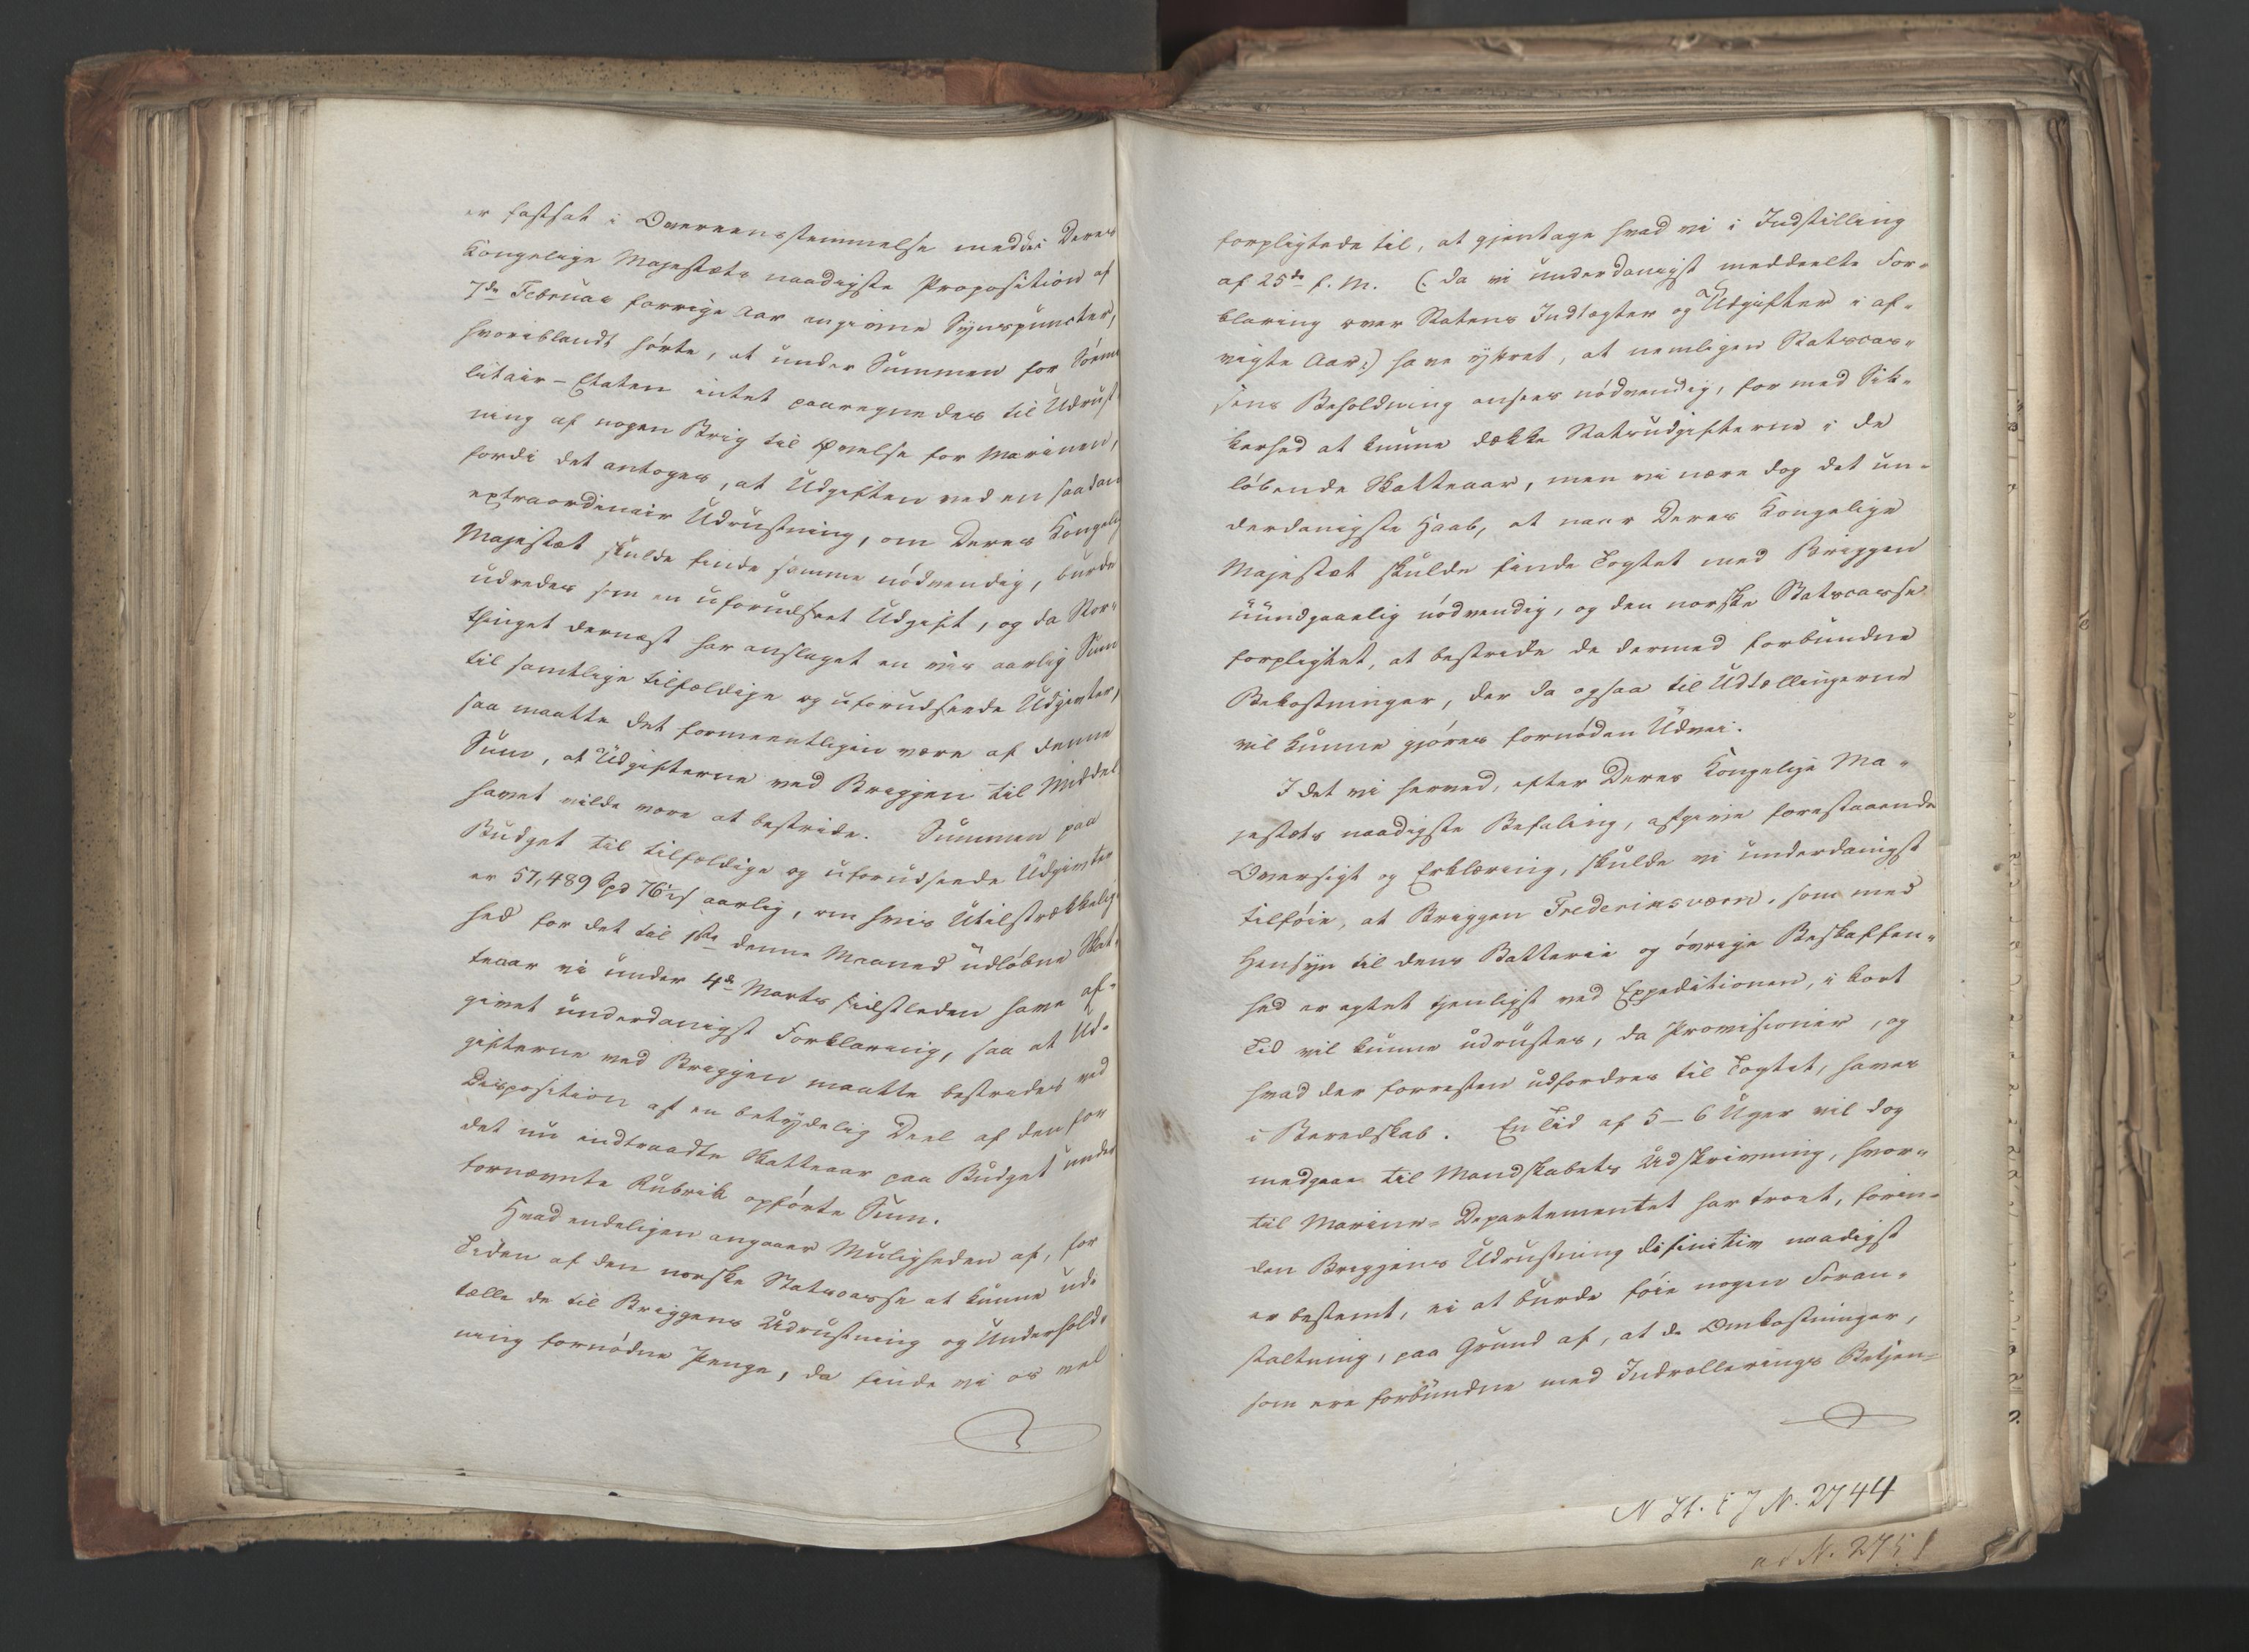 er fastsat i Overeensstemmelse med de i Deres
Kongelige Majestæts naadigste Proposition af
7de Februar forrige Aar angivne Synspuncter,
hvoriblandt hørte, at under Summen for Sømi
litair-Etaten intet paaregnedes til Udrust
ning af nogen Brig til Øvelse for Marinen,
fordi det antoges, at Udgiften ved en saadan
extraordinair Udrustning, om Deres Kongelig
Majestæt skulde finde samme nödvendig, burde
udredes som en uforudseet Udgift, og da Stor-
thinget dernæst har anslaget en vis aarlig Sum
til samtlige tilfældige og uforudseede Udgivter,
saa maatte det formeentligen være af denne
Sum, at Udgifterne ved Briggen til Middel
havet vilde være at bestride. Summen paa
Budget til tilfældige og uforudseede Udgivter
er 57,489 Spd 76½ s aarlig, om hvis Utilstrækkelig
hed for det til 1ste denne Maaned udløbne Skat-
teaar vi under 4de Marts sidstleden have af-
givet underdanigst Forklaring, saa at Ud-
gifterne ved Briggen maatte bestrides ved
Disposition af en betydelig Deel af den for
det nu indtraadte Skatteaar paa Budget under
fornævnte Rubrik opførte Sum.
Hvad endeligen angaaer Muligheden af, for
Tiden af den norske Statscasse at kunne ud-
tælle de til Briggens Udrustning og Underhold-
ning fornødne Penge, da finde vi os vel
forpligtede til, at gjentage hvad vi i Indstilling
af 25de f. M. (: da vi underdanigst meddeelte For-
klaring over Statens Indtægter og Udgifter i af-
vigte Aar:) have ytret, at nemligen Statscas-
sens Beholdning ansees nödvendig, for med Sik-
kerhed at kunne dække Statsudgifterne i de
løbende Skatteaar, men vi nære dog det un-
derdanigste Haab, at naar Deres Kongelige
Majestæt skulde finde Togtet med Briggen
uundgaaelig nödvendig, og den norske Statscasse
forpligtet, at bestride de dermed forbundne
Bekostninger, der da ogsaa til Udtællingerne
vil kunne gjøres fornøden Udvei.
I det vi herved, efter Deres Kongelige Ma-
jestæts naadigste Befaling, afgive forestaaende
Oversigt og Erklæring, skulde vi underdanigst
tilføie, at Briggen Frederiksværn, som med
Hensyn til dens Batterie og øvrige Beskaffen-
hed er agtet tjenligst ved Expeditionen, i kort
Tid vil kunne udrustes, da Provisioner, og
hvad der forresten udfordres til Togtet, haves
i Beredskab. En Tid af 5-6 Uger vil dog
medgaae til Mandskabets Udskrivning, hvor-
til Marine-Departementet har troet, forin-
den Briggens Udrustning definitiv naadigst
er bestemt, ei at burde føie nogen Foran-
staltning, paa Grund af, at de Omkostninger,
som ere forbundne med Indrollerings Betjen-
N St. E J N. 2744
ad N. 2751